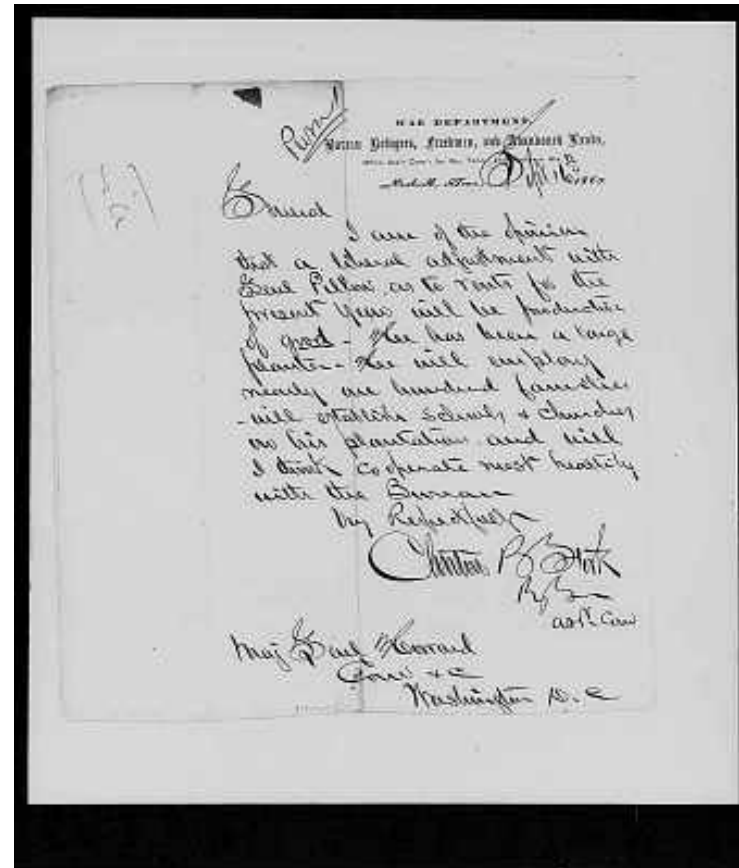 WAR DEPARTMENT,
Bureau Refugees, Freedmen, and Abandoned Lands,
Nashville, Tenn. Sept 1865
General
I am of the opinion
that a liberal adjustment with
Genl Pillow as to rents for the
present year will be productive
of good - He has been a large
planter - He will employ
nearly one hundred families
- will establish schools & churches
on his plantations and will
I think cooperate most heartily
with the Bureau
Very Respectfully
Clinton B Fisk
Asst. Com
Maj Genl Howard
Com &c
Washington D. C